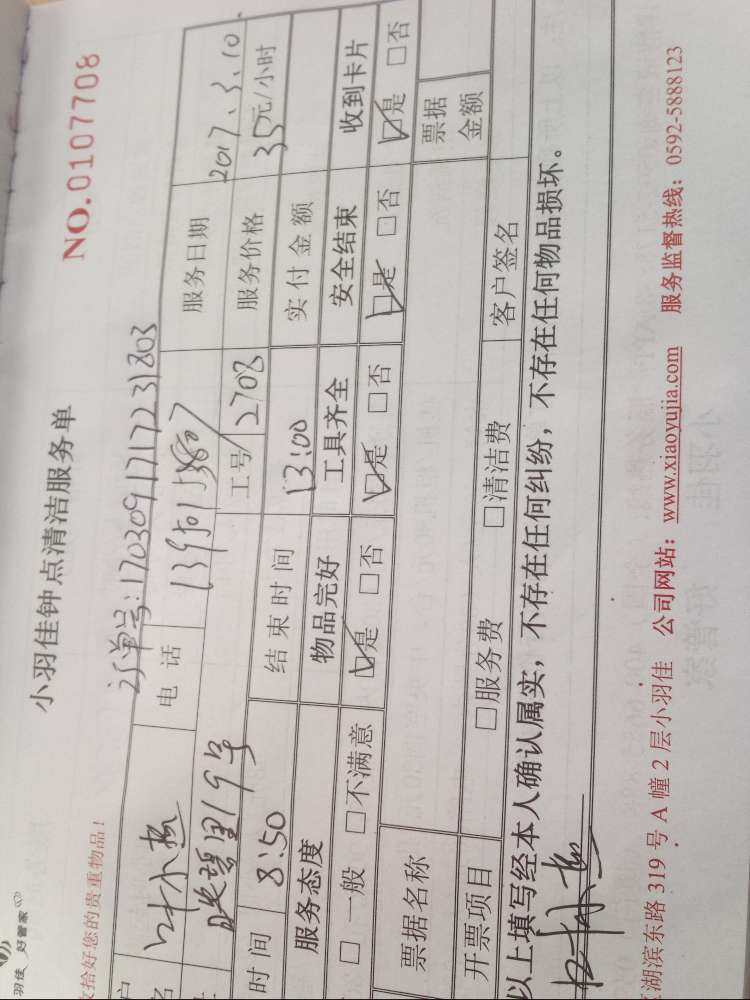 羽佳 好管家
小羽佳钟点清洁服务单
NO.0107708
收拾好您的贵重物品!
订单号:17030917172231803
户 名 叶小燕 电 话 服务日期 2017.3.10
19号 工号 2708 服务价格 35元/小时
时间 8:50 结束时间 13:00 实付金额
服务态度 物品完好 工具齐全 安全结束 收到卡片
□ 一般 □不满意 ☑是 □否 ☑是 □否 ☑是 □否 ☑是 □否
票据名称 票据金额
开票项目 □服务费 □清洁费 客户签名
以上填写经本人确认属实,不存在任何纠纷,不存在任何物品损坏。
湖滨东路 319 号 A 幢 2 层小羽佳 公司网站:www.xiaoyujia.com 服务监督热线:0592-5888123